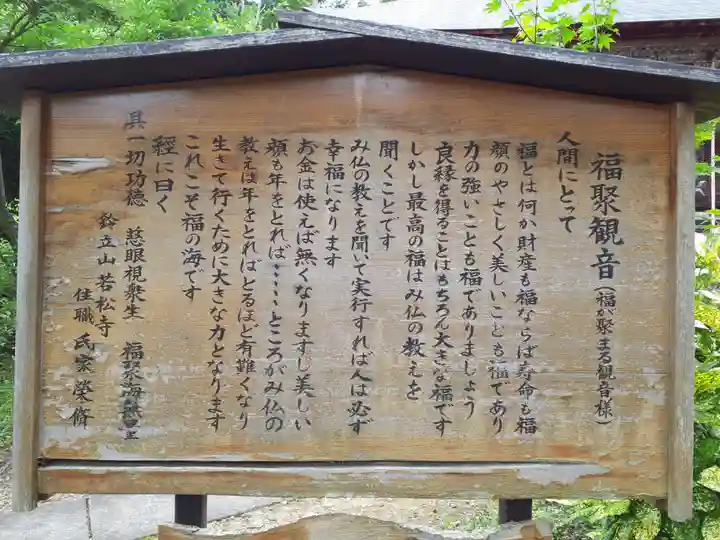 福聚観音(福が聚まる観音様)
人間にとって
福とは何か財産も福ならば寿命も福
顔のやさしく美しいことも福であり
力の強いことも福でありましょう
良縁を得ることはもちろん大きな福です
しかし最高の福はみ仏の教えを
聞くことです
み仏の教えを聞いて実行すれば人は必ず
幸福になります
お金は使えば無くなりますし美しい
顔も年をとれば・・・・ところがみ仏の
教えは年をとればとるほど有難くなり
生きて行くために大きな力となります
これこそ福の海です
經に曰く
具一切功德 慈眼視衆生 福聚海無量
鈴立山若松寺
住職 氏家榮脩